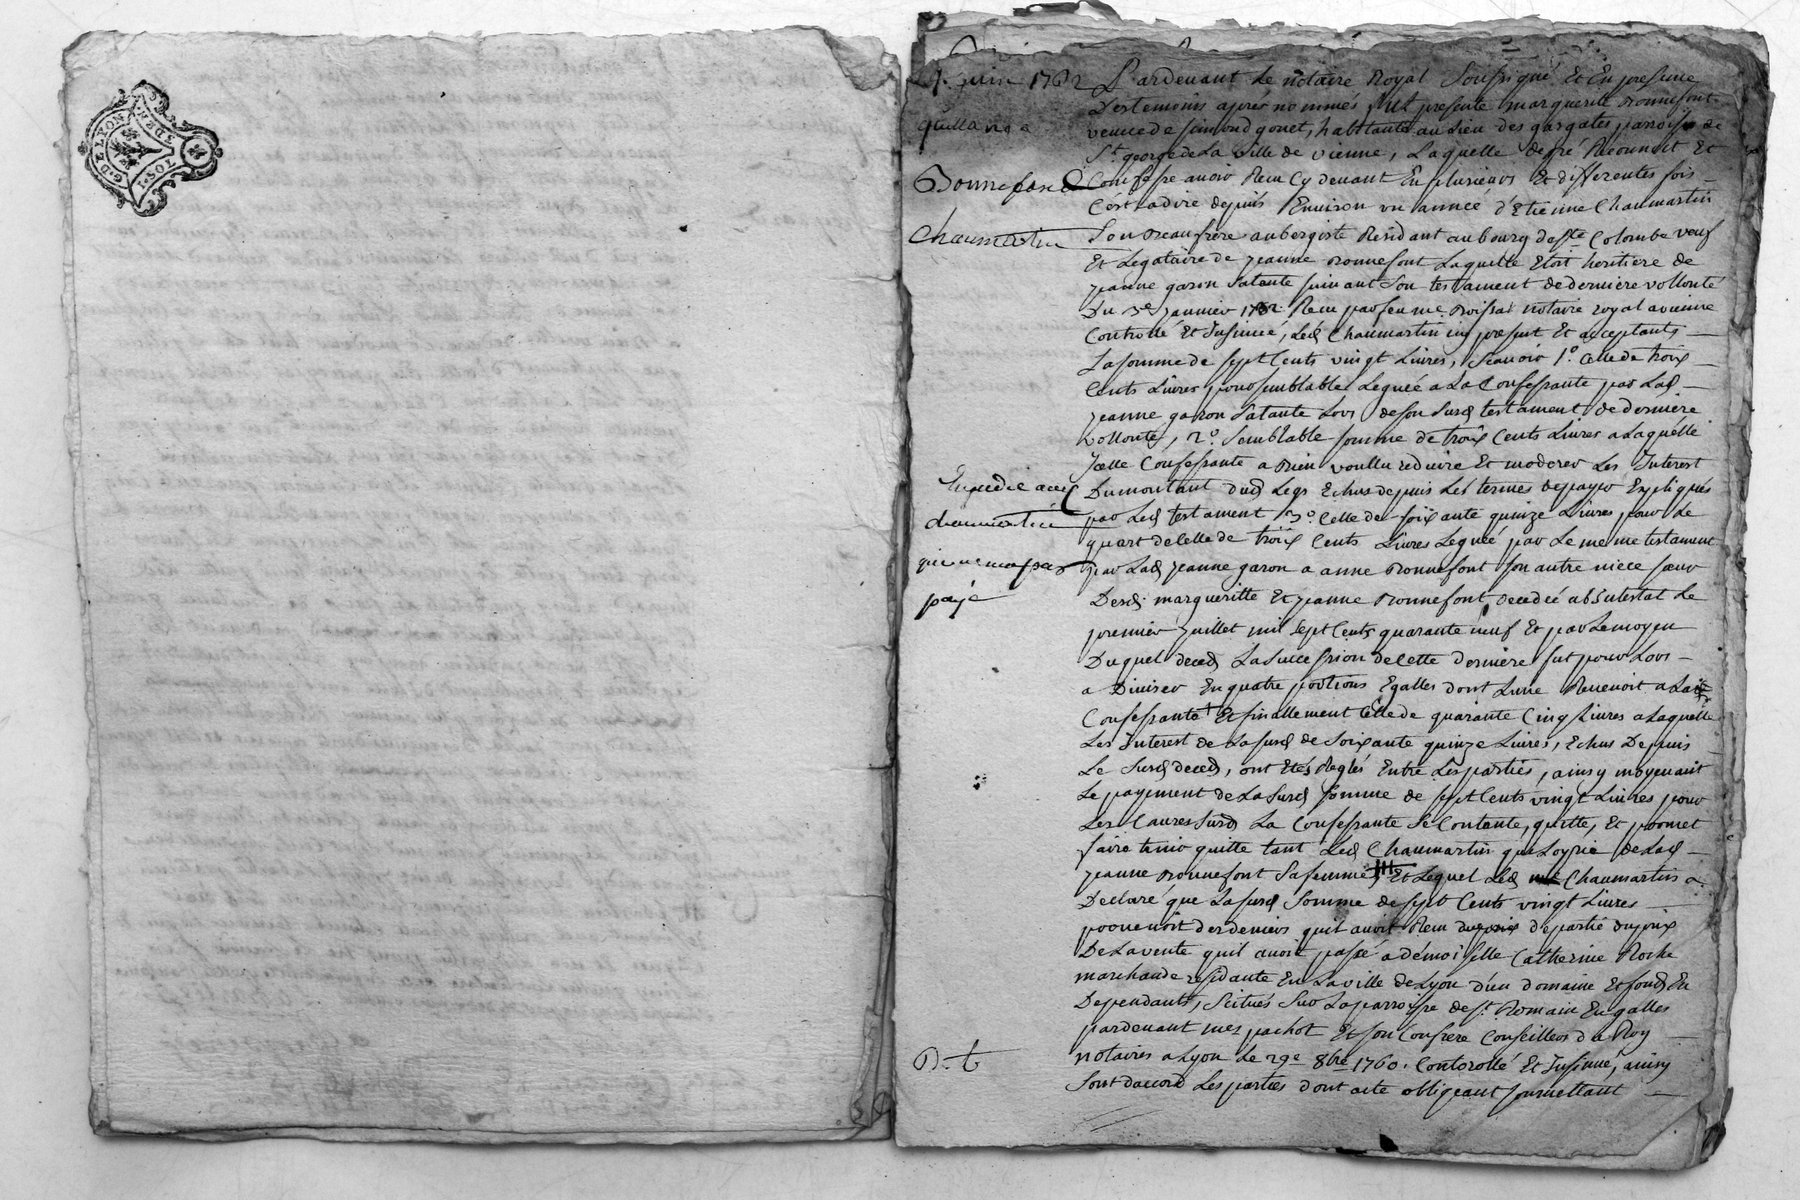 G. DE LYON
1 SOL
Juin 1762
quittance
Bonnefond
Chaumartin
Expedié aud
chaumartin
qui ne ma pas
payé
B. t
Pardevant Le notaire Royal Soussigné Et En presence
Des temoins apres nommés fut presente marguerite Bonnefont
veuve de simond gonet, habitante au Lieu des gargates parroisse de
St. george de La Ville de vienne, Laquelle de gré Reconnoit Et
Confesse avoir Reçu Cy devant En plusieurs Et differentes fois
C'est a dire depuis Environ un année d'Etienne Chaumartin
Son Beaufrere aubergiste Residant au bourg de Ste Colombe veuf
Et Legataire de jeanne Bonnefont Laquelle Etoit heritiere de
jeanne garon Sa tante suivant Son testament de derniere vollonté
Du 3e janvier Reçu par feu me Boissat notaire royal a vienne
Controllé Et Insinué, Led Chaumartin icy present Et acceptants
La somme de sept Cents vingt Livres, Scavoir 1o. Celle de trois
Cents Livres pour semblable Leguée a La Confessante par Lad
jeanne garon Sa tante Lors de son Susd testament de derniere
vollonté, 2o. Semblable somme de trois Cents Livres a Laquelle
Icelle Confessante a Bien voullu reduire Et moderer Les Interest
Du montant dud Legs Echus depuis Les termes de payer Expliqués
par Led testament 3o. Celle de soixante quinze Livres pour Le
quart de Celle de trois Cents Livres Leguée par Le meme testament
par Lad jeanne garon a anne Bonnefont son autre niece sœur
Desd. margueritte Et jeanne Bonnefont, decedée abintestat Le
premier juillet mil sept Cents quarante neuf Et par Le moyen
Duquel deced La succession de Cette derniere fut pour Lors
a Diviser En quatre portions Egalles dont Lune Revenoit a La
Confessante Et finallement Celle de quarante Cinq Livres a Laquelle
Les Interest de La susd de Soixante quinze Livres, Echus Depuis
Le Susd deced, ont Etés Reglés Entre Les parties, ainsy moyenant
Le payement de La Susd somme de sept Cents vingt Livres pour
Les Causes Susd La Confessante Se Contente, quitte, Et promet
faire tenir quitte tant Led Chaumartin que Loyrie de Lad
jeanne Bonnefont Sa femme Et Lequel Led Chaumartin a
Declaré que La susd Somme de sept Cents vingt Livres
provenoit des deniers quil avoit Reçu de partie du prix
De La vente quil avoit passé a demoiselle Catherine Roche
marchande residante En La ville de Lyon d'un domaine Et fonds En
Dependants, Scitués Sur La parroisse de St. Romain En galles
pardevant mes pachot Et son Confrere Conseillers du Roy
notaires a Lyon Le 29e 8bre 1760. Controllé Et Insinué, ainsy
Sont d'accord Les parties dont acte obligeant soumettant